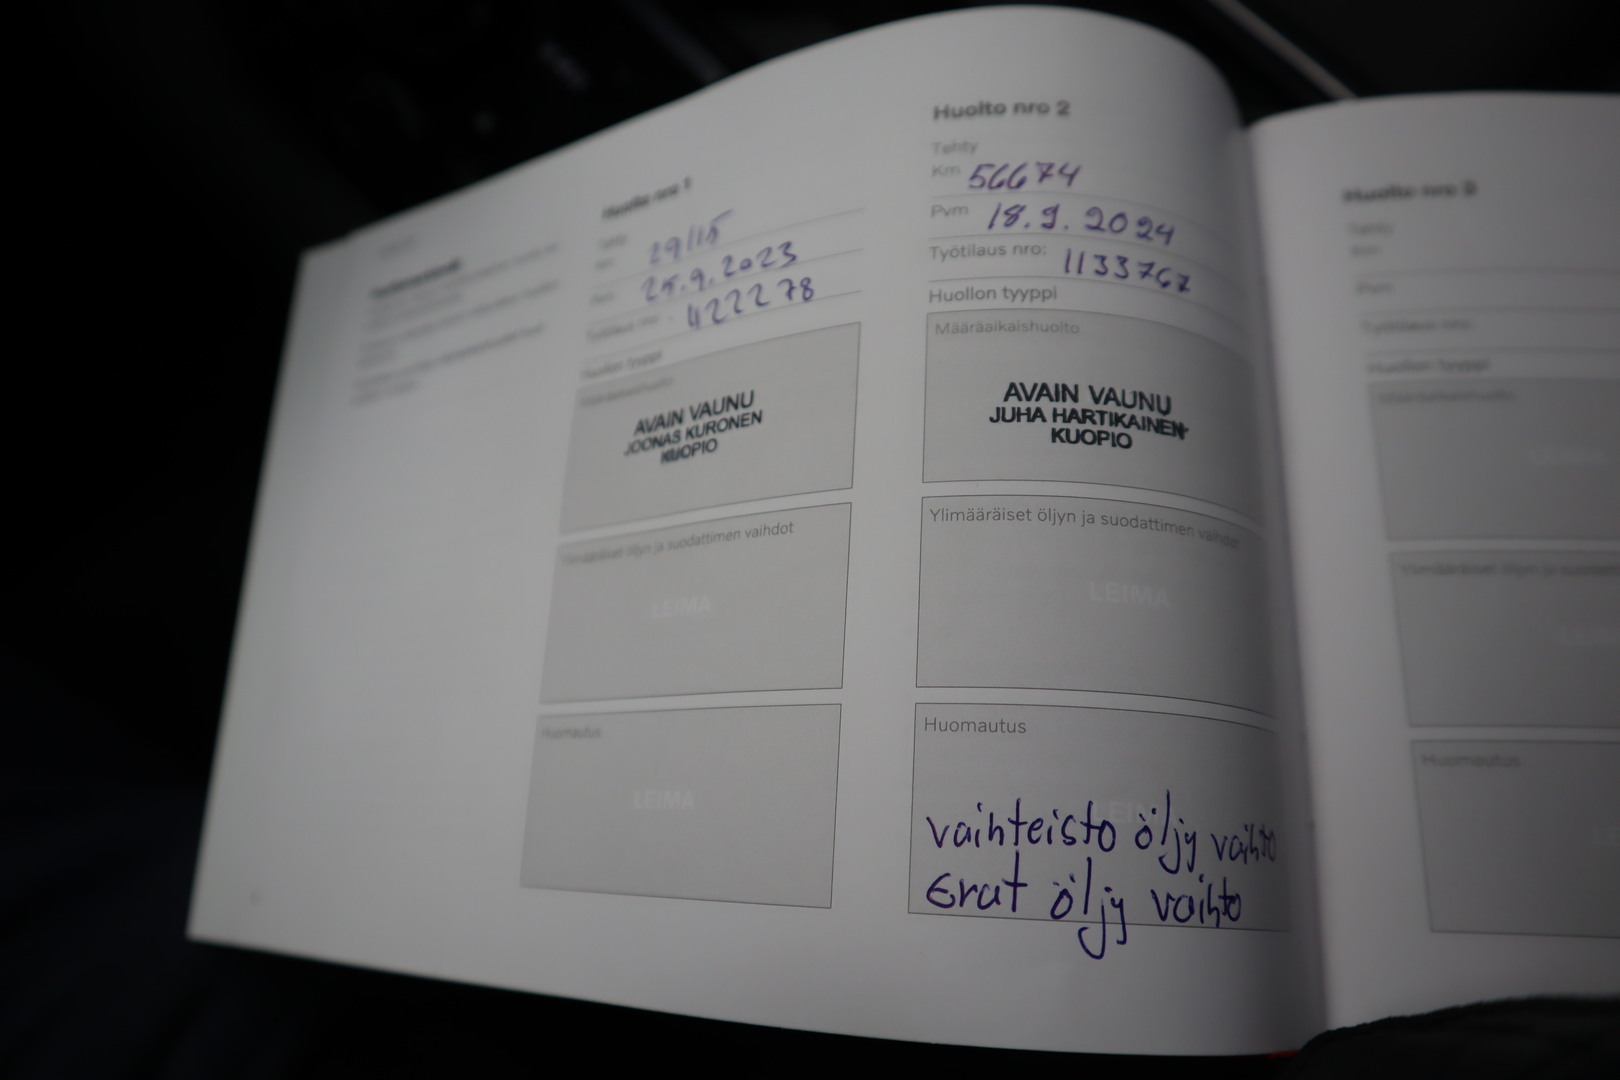 Huolto nro 1
29115
25.9.2023
422278
Huollon tyyppi
AVAIN VAUNU
JOONAS KURONEN
KUOPIO
Ylimääräiset öljyn ja suodattimen vaihdot
LEIMA
Huomautus
LEIMA
Huolto nro 2
Tehty
Km 56674
Pvm 18.9.2024
Työtilaus nro: 1133767
Huollon tyyppi
Määräaikaishuolto
AVAIN VAUNU
JUHA HARTIKAINEN
KUOPIO
Ylimääräiset öljyn ja suodattimen vaihdot
LEIMA
Huomautus
LEIMA
vaihteisto öljy vaihto
Erat öljy vaihto
Huolto nro 3
Tehty
Km
Pvm
Työtilaus nro:
Huollon tyyppi
Määräaikaishuolto
Huomautus